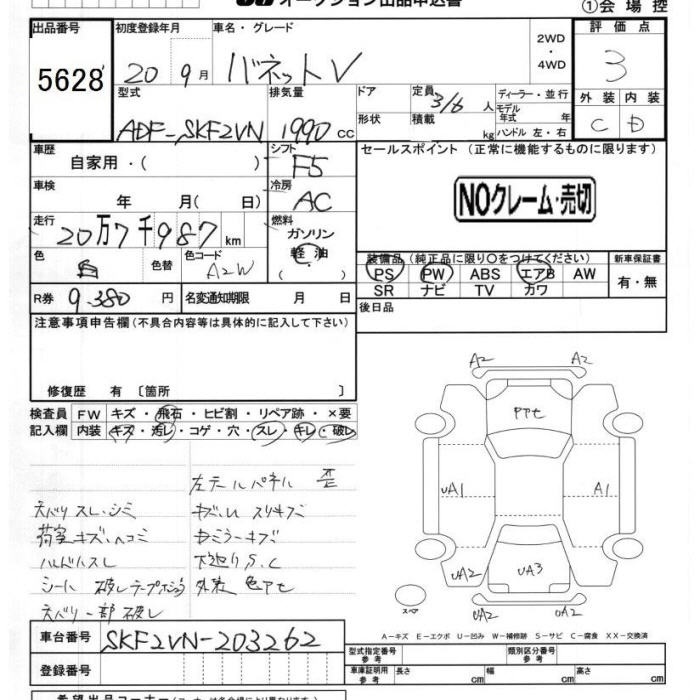 オークション出品申込書
①会場控
出品番号 初度登録年月 車名・グレード 評価点
5628 20 9月 バネットV 2WD・4WD 3
型式 排気量 ドア 定員 3/6人 ディーラー・並行 外装 内装
ADF-SKF2VN 1990cc 形状 積載 kg モデル年式 年 ハンドル 左・右 C D
車歴 シフト セールスポイント (正常に機能するものに限ります)
自家用・( ) F5
車検 冷房
年 月( 日) AC NOクレーム・売切
走行 燃料
20万7千987km ガソリン
軽油
( )
色 色替 色コード 装備品(純正品に限り○をつけてください) 新車保証書
白 A2W PS PW ABS エアB AW 有・無
SR ナビ TV カワ
R券 9.380円 名変通知期限 月 日 後日品
注意事項申告欄(不具合内容等は具体的に記入して下さい)
修復歴 有〔箇所 〕
検査員 FW キズ・飛石・ヒビ割・リペア跡・×要
記入欄 内装 キズ・汚レ・コゲ・穴・スレ・キレ・破レ
A2 A2
Pアセ
左テールパネル 歪
UA1 A1
ネバリ スレ.シミ
荷室キズ.ヘコミ キズ
ハンドルスレ 下廻りS.C
UA2 UA3
シート 破レ 外装 色アセ
スペア UA2 UA2
ネバリ一部破レ
A－キズ E－エクボ U－凹み W－補修跡 S－サビ C－腐食 XX－交換済
車台番号 SKF2VN-203262
型式指定番号 参考 類別区分番号 参考
登録番号 車庫証明用 参考 長さ cm 幅 cm 高さ cm
希望出品コーナー